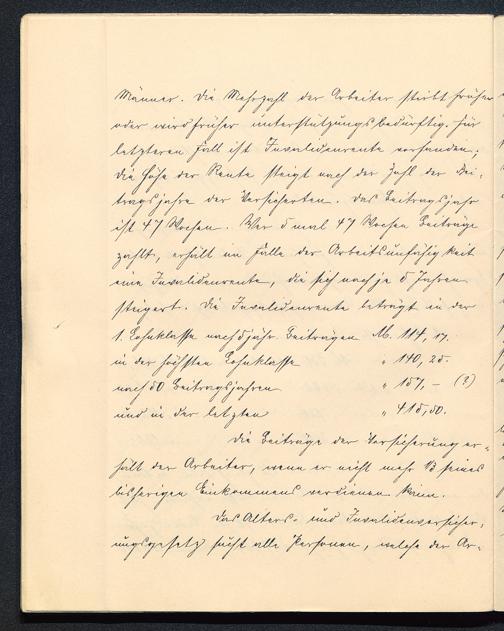 Männer. Die Mehrzahl der Arbeiter stirbt früher
oder wird früher unterstützungsbedürftig. Für
letzteren Fall ist Invalidenrente vorhanden;
die Höhe der Rente steigt nach der Zahl der Bei-
tragsjahre der Versicherten. Das Beitragsjahr
ist 47 Wochen. Wer 5 mal 47 Wochen Beiträge
zahlt, erhält im Falle der Arbeitsunfähigkeit
eine Invalidenrente, die sich nach je 5 Jahren
steigert. Die Invalidenrente beträgt in der
1. Lohnklasse nach 5jähr. Beiträgen M. 114, 17.
in der höchsten Lohnklasse " 140, 25.
nach 50 Beitragsjahren " 157, – (?)
und in der letzten " 415, 50.
Die Beiträge der Versicherung er-
hält der Arbeiter, wenn er nicht mehr 1/3 seines
bisherigen Einkommens verdienen kann.
Das Alters- und Invalidenversicher-
ungsgesetz sucht alle Personen, welche der Ar-